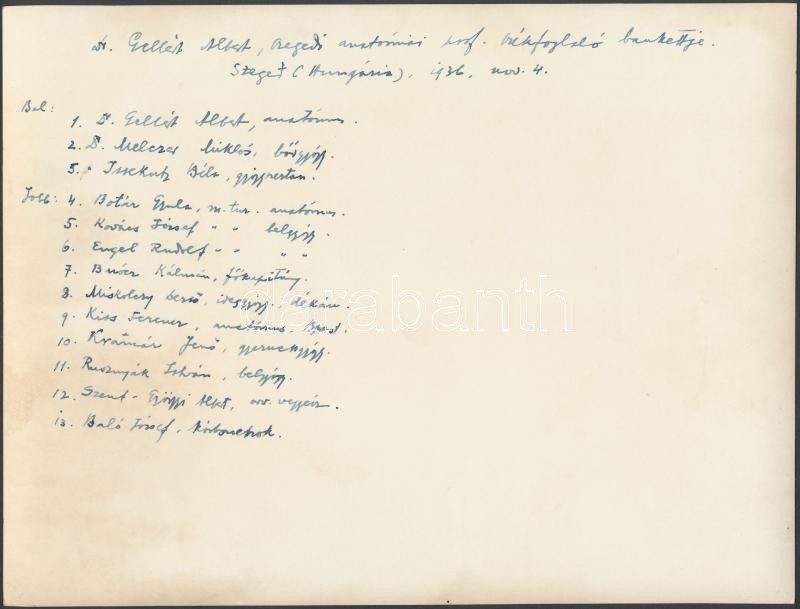 Dr. Gellért Albert, szegedi anatómiai prof. székfoglaló bankettje.
Szeged (Hungária), 1936, nov. 4.
Bal:
1. Dr. Gellért Albert, anatómus.
2. D. Melczer Miklós, bőrgyógy.
3. " Issekutz Béla, gyógyszertan.
Jobb: 4. Botár Gyula, m. tur. anatómus.
5. Kovács József " " belgyógy.
6. Engel Rudolf " " " "
7. Buócz Kálmán, főkapitány.
8. Miskolczy Dezső, ideggyógy., dékán.
9. Kiss Ferenc, anatómus, Bpest.
10. Kramár Jenő, gyermekgyógy.
11. Rusznyák István, belgyógy.
12. Szent-Györgyi Albert, orv. vegyész.
13. Baló József, kórboncnok.
darabanth